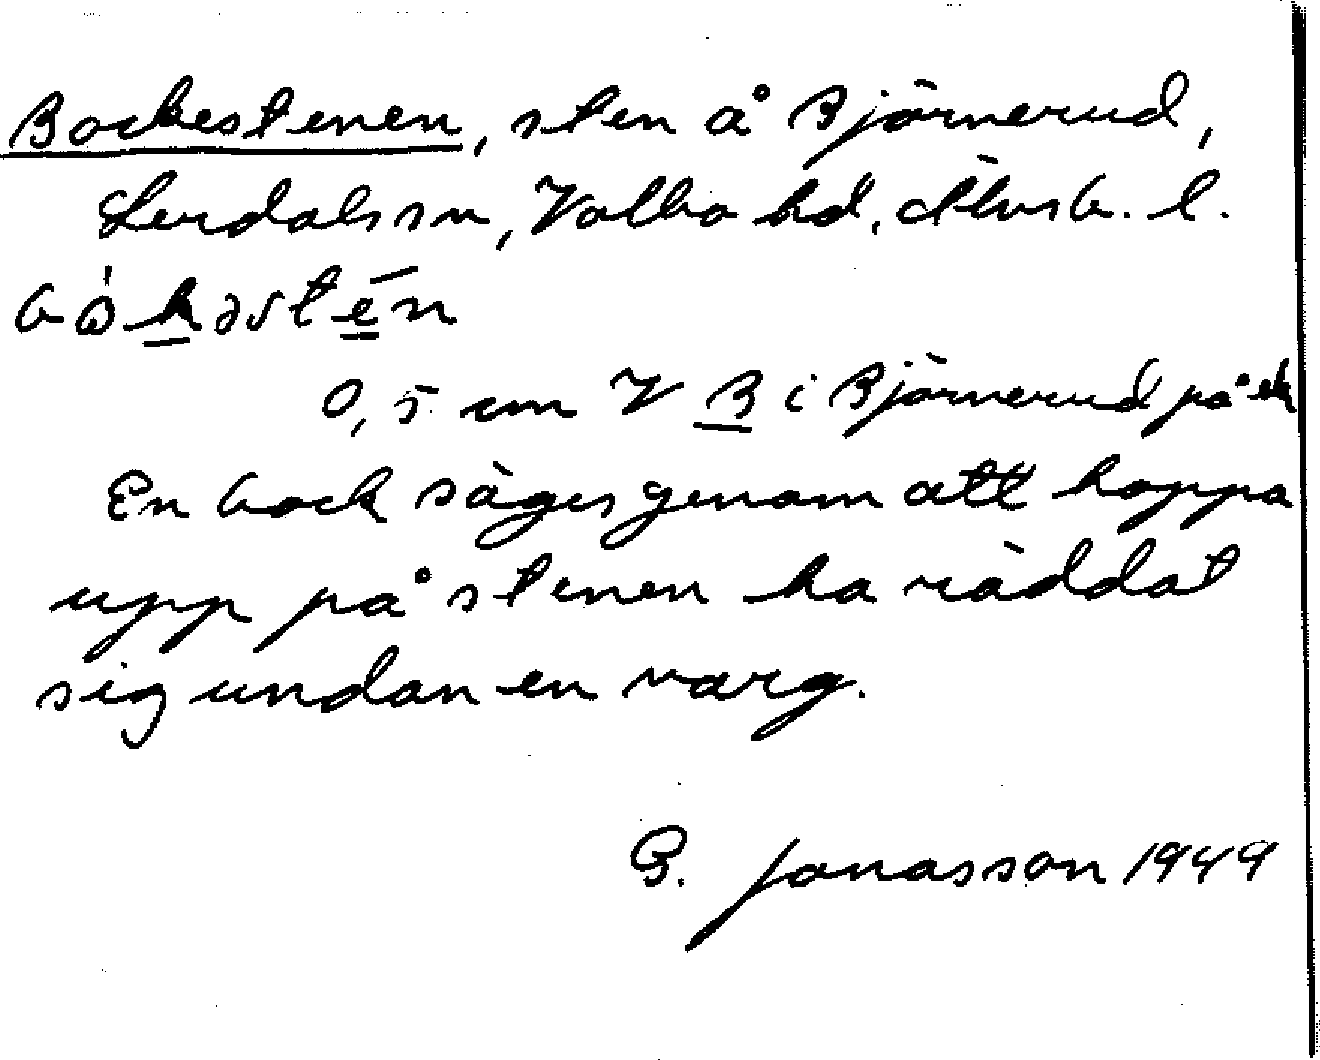 Bockestenen, sten å Björnerud,
Lerdals sn, Valbo hd, Älvsb. l.
0,5 cm V B i Björnerud på ek
En bock säges genom att hoppa
upp på stenen ha räddat
sig undan en varg.
G. Jonasson 1949